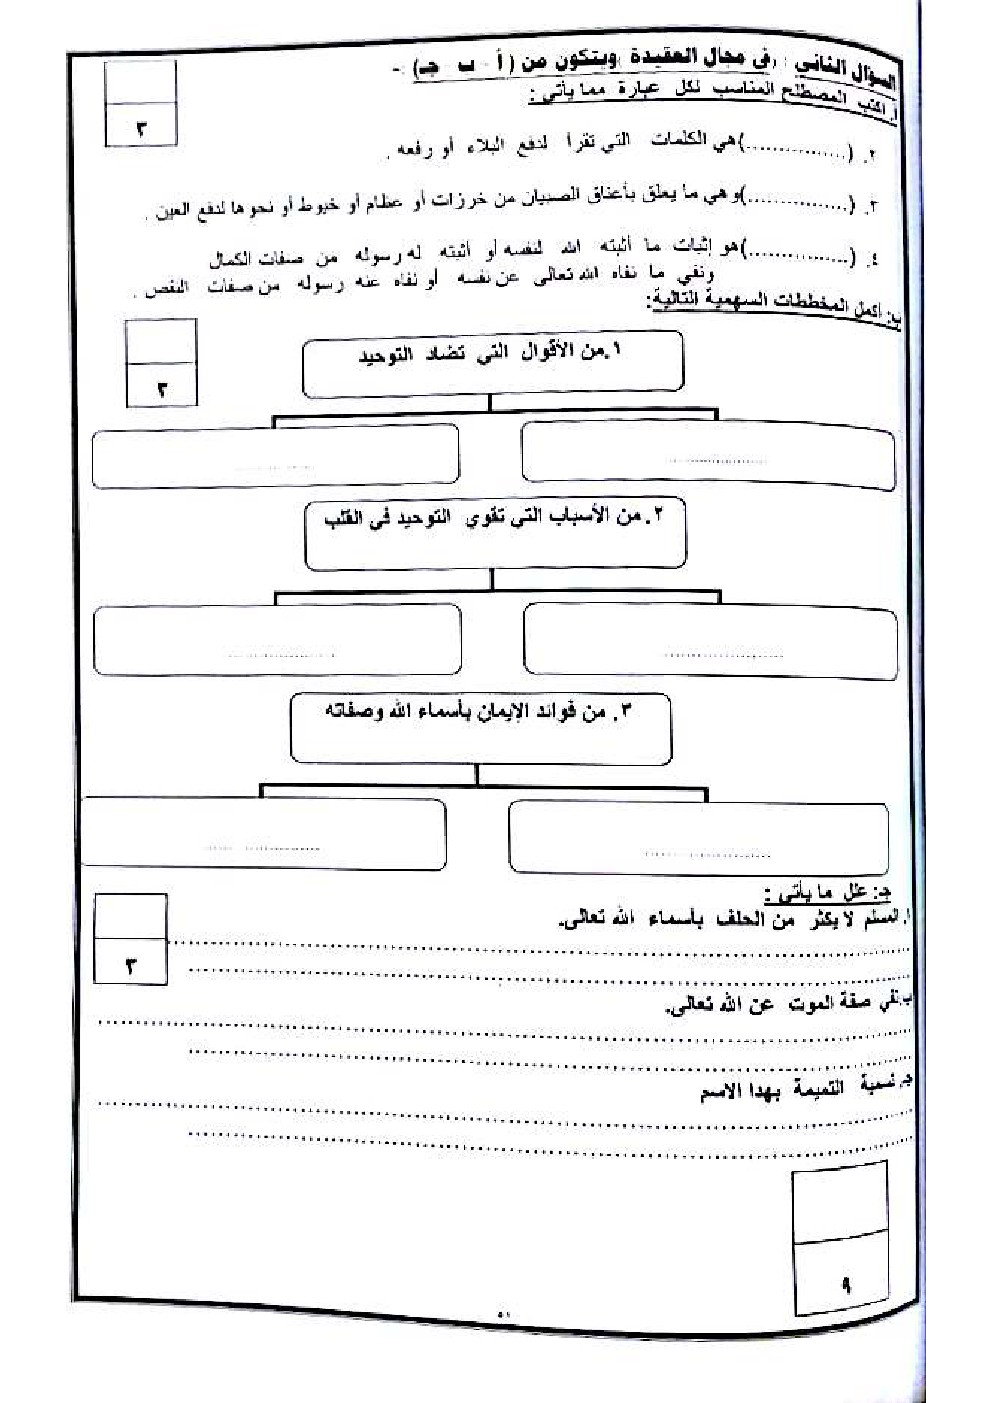 السؤال الثاني : (في مجال العقيدة) ويتكون من ( أ - ب - جـ ) :-
أ. اكتب المصطلح المناسب لكل عبارة مما يأتي :
٣
٢. (................)هي الكلمات التي تقرأ لدفع البلاء أو رفعه .
٣. (................)وهي ما يعلق بأعناق الصبيان من خرزات أو عظام أو خيوط أو نحوها لدفع العين .
٤. (................)هو إثبات ما أثبته الله لنفسه أو أثبته له رسوله من صفات الكمال
ونفي ما نفاه الله تعالى عن نفسه أو نفاه عنه رسوله من صفات النقص .
ب: أكمل المخططات السهمية التالية:
٣
١.من الأقوال التي تضاد التوحيد
٢. من الأسباب التي تقوي التوحيد في القلب
٣. من فوائد الإيمان بأسماء الله وصفاته
جـ: علل ما يأتي :
١. المسلم لا يكثر من الحلف بأسماء الله تعالى.
٣
ب. نفي صفة الموت عن الله تعالى.
جـ. تسمية التميمة بهذا الاسم
٩